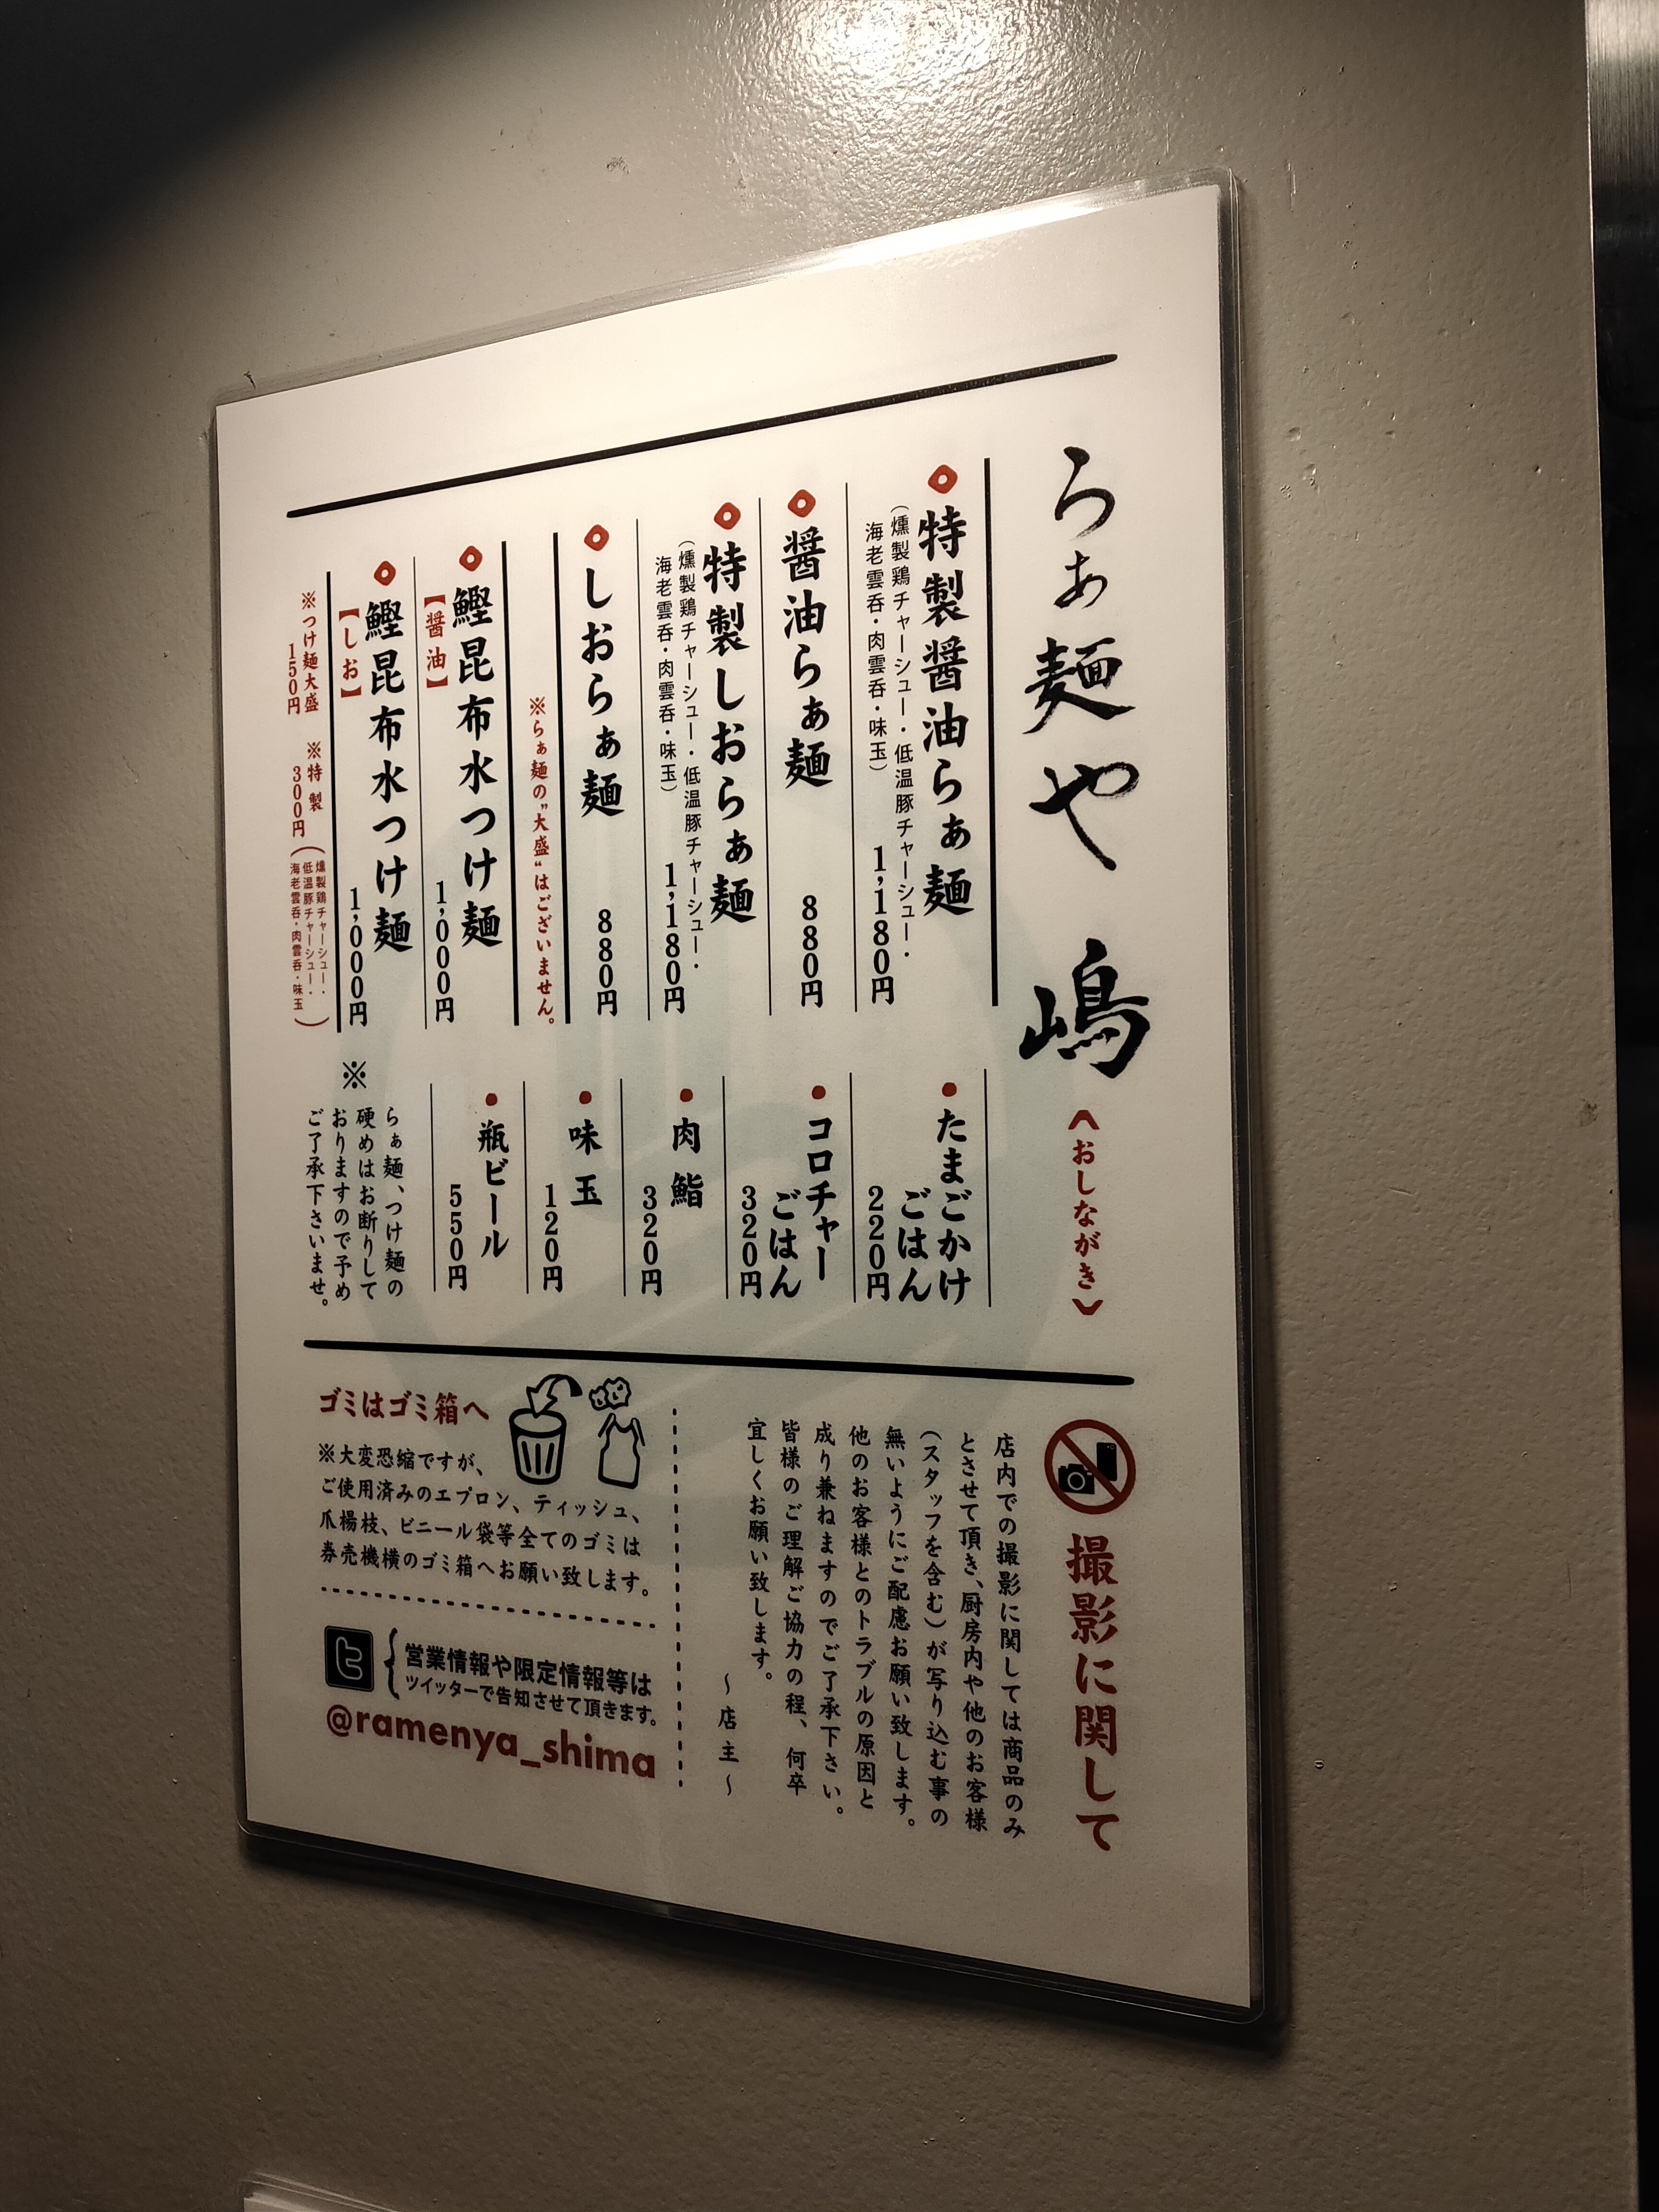 らぁ麺や 嶋
《おしながき》
特製醤油らぁ麺
(燻製鶏チャーシュー・低温豚チャーシュー・
海老雲呑・肉雲呑・味玉)
1,180円
醤油らぁ麺
880円
特製しおらぁ麺
(燻製鶏チャーシュー・低温豚チャーシュー・
海老雲呑・肉雲呑・味玉)
1,180円
しおらぁ麺
880円
※らぁ麺の"大盛"はございません。
鰹昆布水つけ麺
【醤油】
1,000円
鰹昆布水つけ麺
【しお】
1,000円
※つけ麺大盛
150円
※特製
300円
(燻製鶏チャーシュー・
低温豚チャーシュー・
海老雲呑・肉雲呑・味玉)
たまごかけ
ごはん
220円
コロチャー
ごはん
320円
肉鮨
320円
味玉
120円
瓶ビール
550円
※
らぁ麺、つけ麺の
硬めはお断りして
おりますので予め
ご了承下さいませ。
撮影に関して
店内での撮影に関しては商品のみ
とさせて頂き、厨房内や他のお客様
(スタッフを含む)が写り込む事の
無いようにご配慮お願い致します。
他のお客様とのトラブルの原因と
成り兼ねますのでご了承下さい。
皆様のご理解ご協力の程、何卒
宜しくお願い致します。
~店主~
ゴミはゴミ箱へ
※大変恐縮ですが、
ご使用済みのエプロン、ティッシュ、
爪楊枝、ビニール袋等全てのゴミは
券売機横のゴミ箱へお願い致します。
営業情報や限定情報等は
ツイッターで告知させて頂きます。
@ramenya_shima